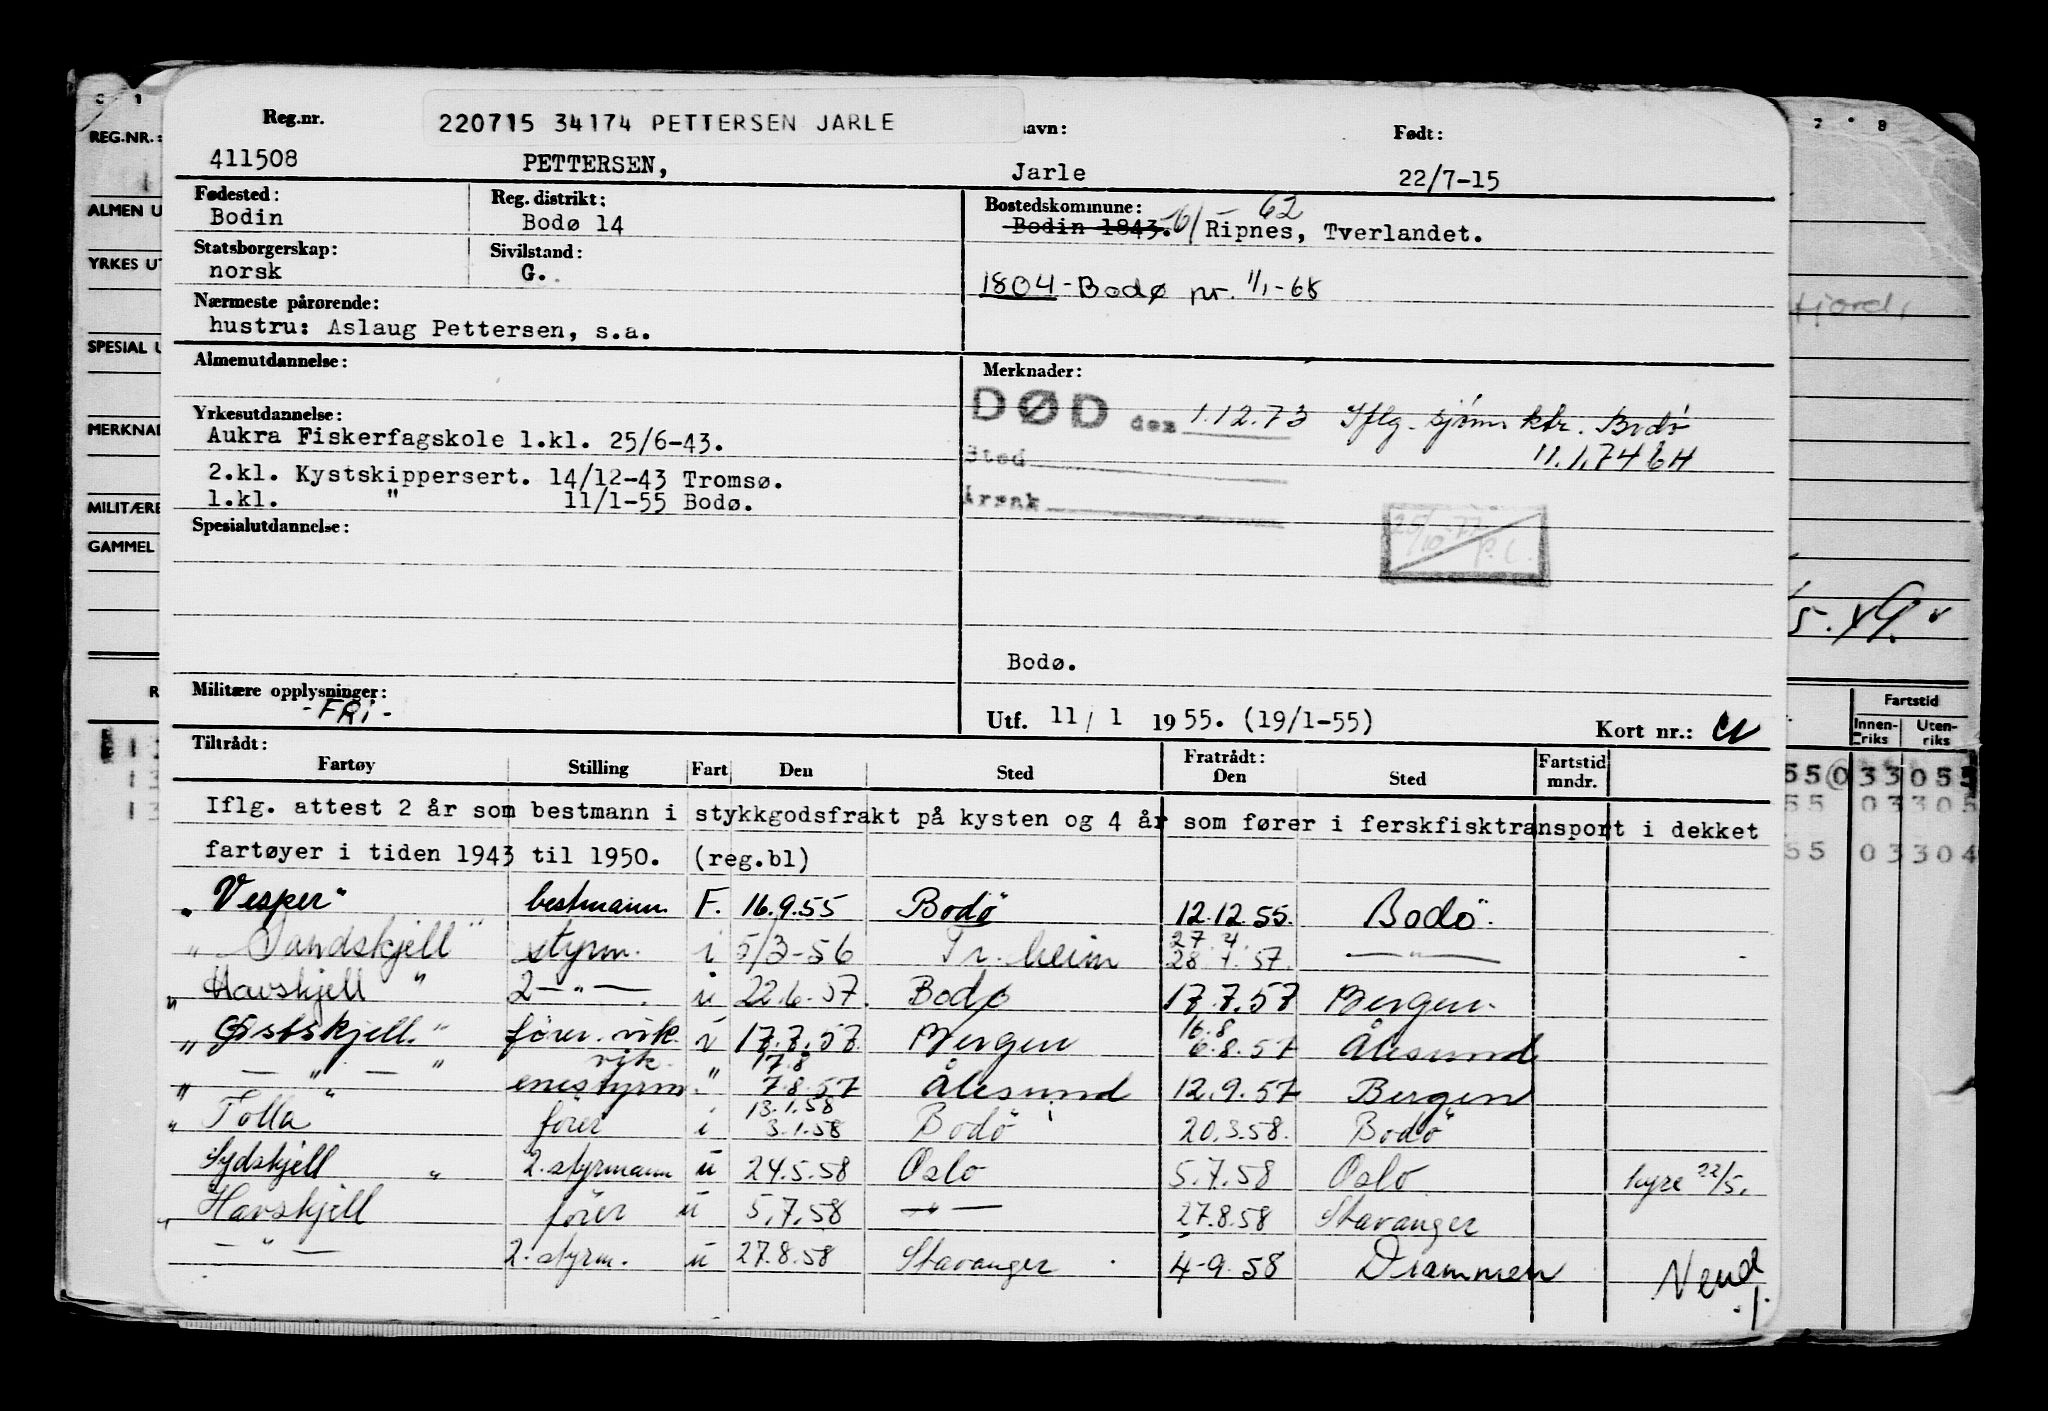 220715 34174 PETTERSEN JARLE
Reg.nr. navn: Født:
411508 PETTERSEN, Jarle 22/7-15
Fødested: Reg. distrikt: Bostedskommune:
Bodin Bodø 14 Bodin 1843. 6/ - 62 Ripnes, Tverlandet.
Statsborgerskap: Sivilstand:
norsk G. 1804 - Bodø pr. 1/1-68
Nærmeste pårørende:
hustru: Aslaug Pettersen, s.a.
Almenutdannelse: Merknader:
DØD den 1.12.73 Iflg. sjøm. ktr. Bodö
11.1.74 bH
Sted
Årsak
Yrkesutdannelse:
Aukra Fiskerfagskole 1.kl. 25/6-43.
2.kl. Kystskippersert. 14/12-43 Tromsø.
1.kl. " 11/1-55 Bodø.
25/10-77 P.L.
Spesialutdannelse:
Bodø.
Militære opplysninger:
-FRi-
Utf. 11 / 1 1955. (19/1-55) Kort nr.:
Tiltrådt: Fratrådt:
Fartøy Stilling Fart Den Sted Den Sted Fartstid mndr.
Iflg. attest 2 år som bestmann i stykkgodsfrakt på kysten og 4 år som fører i ferskfisktransport i dekket
fartøyer i tiden 1943 til 1950. (reg.bl)
"Vesper" bestmann F. 16.9.55 Bodö 12.12.55. Bodö.
"Sandskjell" styrm. i 5/3-56 Tr.heim 27.4. 28.4.57. —"—
"Havskjell" 2 —"—. u 22.6.57. Bodø 17.7.57 Bergen.
"Østskjell." fører. vik. u 17.7.57. Bergen 16.8 6.8.57 Ålesund
" — " — " vik. enestyrm. " 17.8 7.8.57 Ålesund 12.9.57 Bergen
"Tolla" fører i 13.1.58 3.1.58 Bodö 20.3.58. Bodö
Sydskjell " 2. styrmann u 24.5.58 Oslo 5.7.58 Oslo hyre 22/5.
"Havskjell fører u 5.7.58 —"— 27.8.58 Stavanger
— " — 2. styrm. u 27.8.58 Stavanger 4-9.58 Drammen
Vend
.!.
REG.NR.:
ALMEN U
YRKES UT
SPESIAL U
MERKNAD
MILITÆRE
GAMMEL
R
fjord,
Fartstid
Innenriks Utenriks
55 0 33 055
55 03 305
55 03 304